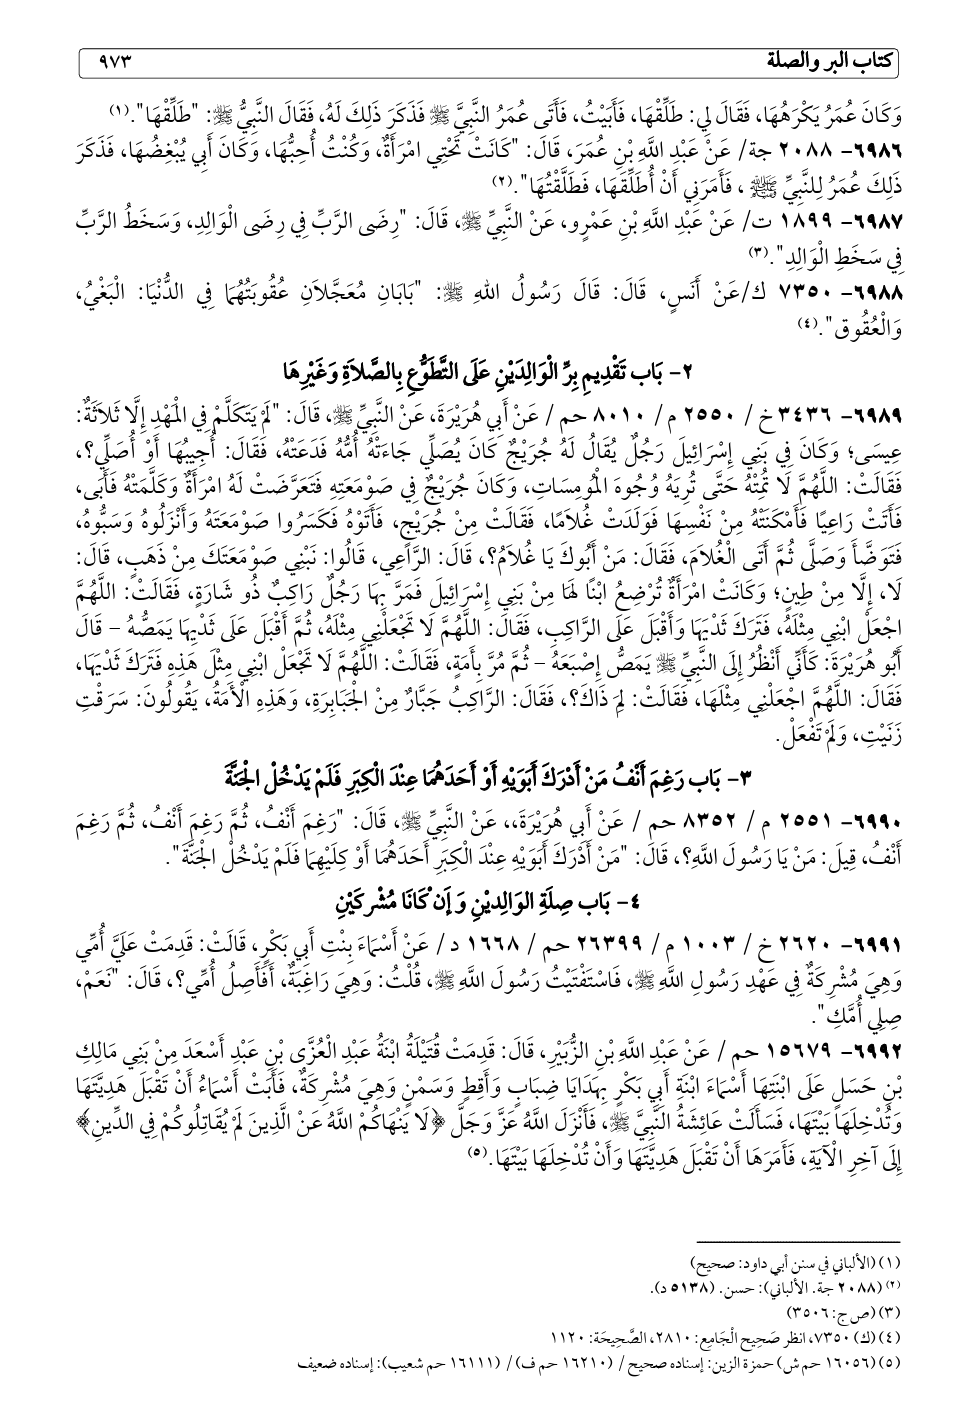 كتاب البر والصلة ٩٧٣
وَكَانَ عُمَرُ يَكْرَهُهَا، فَقَالَ لِي: طَلِّقْهَا، فَأَبَيْتُ، فَأَتَى عُمَرُ النَّبِيَّ ﷺ فَذَكَرَ ذَلِكَ لَهُ، فَقَالَ النَّبِيُّ ﷺ: "طَلِّقْهَا".(١)
٦٩٨٦- ٢٠٨٨ جة/ عَنْ عَبْدِ اللَّهِ بْنِ عُمَرَ، قَالَ: "كَانَتْ تَحْتِي امْرَأَةٌ، وَكُنْتُ أُحِبُّهَا، وَكَانَ أَبِي يُبْغِضُهَا، فَذَكَرَ
ذَلِكَ عُمَرُ لِلنَّبِيِّ ﷺ ، فَأَمَرَنِي أَنْ أُطَلِّقَهَا، فَطَلَّقْتُهَا".(٢)
٦٩٨٧- ١٨٩٩ ت/ عَنْ عَبْدِ اللَّهِ بْنِ عَمْرٍو، عَنْ النَّبِيِّ ﷺ، قَالَ: "رِضَى الرَّبِّ فِي رِضَى الْوَالِدِ، وَسَخَطُ الرَّبِّ
فِي سَخَطِ الْوَالِدِ".(٣)
٦٩٨٨- ٧٣٥٠ ك/عَنْ أَنَسٍ، قَالَ: قَالَ رَسُولُ اللهِ ﷺ: "بَابَانِ مُعَجَّلَانِ عُقُوبَتُهُمَا فِي الدُّنْيَا: الْبَغْيُ،
وَالْعُقُوق".(٤)
٢- بَاب تَقْدِيمِ بِرِّ الْوَالِدَيْنِ عَلَى التَّطَوُّعِ بِالصَّلَاةِ وَغَيْرِهَا
٦٩٨٩- ٣٤٣٦ خ / ٢٥٥٠ م/ ٨٠١٠ حم / عَنْ أَبِي هُرَيْرَةَ، عَنْ النَّبِيِّ ﷺ، قَالَ: "لَمْ يَتَكَلَّمْ فِي الْمَهْدِ إِلَّا ثَلَاثَةٌ:
عِيسَى؛ وَكَانَ فِي بَنِي إِسْرَائِيلَ رَجُلٌ يُقَالُ لَهُ جُرَيْجٌ كَانَ يُصَلِّي جَاءَتْهُ أُمُّهُ فَدَعَتْهُ، فَقَالَ: أُجِيبُهَا أَوْ أُصَلِّي؟،
فَقَالَتْ: اللَّهُمَّ لَا تُمِتْهُ حَتَّى تُرِيَهُ وُجُوهَ الْمُومِسَاتِ، وَكَانَ جُرَيْجٌ فِي صَوْمَعَتِهِ فَتَعَرَّضَتْ لَهُ امْرَأَةٌ وَكَلَّمَتْهُ فَأَبَى،
فَأَتَتْ رَاعِيًا فَأَمْكَنَتْهُ مِنْ نَفْسِهَا فَوَلَدَتْ غُلَامًا، فَقَالَتْ مِنْ جُرَيْجٍ، فَأَتَوْهُ فَكَسَرُوا صَوْمَعَتَهُ وَأَنْزَلُوهُ وَسَبُّوهُ،
فَتَوَضَّأَ وَصَلَّى ثُمَّ أَتَى الْغُلَامَ، فَقَالَ: مَنْ أَبُوكَ يَا غُلَامُ؟، قَالَ: الرَّاعِي، قَالُوا: نَبْنِي صَوْمَعَتَكَ مِنْ ذَهَبٍ، قَالَ:
لَا، إِلَّا مِنْ طِينٍ؛ وَكَانَتْ امْرَأَةٌ تُرْضِعُ ابْنًا لَهَا مِنْ بَنِي إِسْرَائِيلَ فَمَرَّ بِهَا رَجُلٌ رَاكِبٌ ذُو شَارَةٍ، فَقَالَتْ: اللَّهُمَّ
اجْعَلْ ابْنِي مِثْلَهُ، فَتَرَكَ ثَدْيَهَا وَأَقْبَلَ عَلَى الرَّاكِبِ، فَقَالَ: اللَّهُمَّ لَا تَجْعَلْنِي مِثْلَهُ، ثُمَّ أَقْبَلَ عَلَى ثَدْيِهَا يَمَصُّهُ – قَالَ
أَبُو هُرَيْرَةَ: كَأَنِّي أَنْظُرُ إِلَى النَّبِيِّ ﷺ يَمَصُّ إِصْبَعَهُ – ثُمَّ مُرَّ بِأَمَةٍ، فَقَالَتْ: اللَّهُمَّ لَا تَجْعَلْ ابْنِي مِثْلَ هَذِهِ فَتَرَكَ ثَدْيَهَا،
فَقَالَ: اللَّهُمَّ اجْعَلْنِي مِثْلَهَا، فَقَالَتْ: لِمَ ذَاكَ؟، فَقَالَ: الرَّاكِبُ جَبَّارٌ مِنْ الْجَبَابِرَةِ، وَهَذِهِ الْأَمَةُ، يَقُولُونَ: سَرَقْتِ
زَنَيْتِ، وَلَمْ تَفْعَلْ.
٣- بَاب رَغِمَ أَنْفُ مَنْ أَدْرَكَ أَبَوَيْهِ أَوْ أَحَدَهُمَا عِنْدَ الْكِبَرِ فَلَمْ يَدْخُلْ الْجَنَّةَ
٦٩٩٠- ٢٥٥١ م / ٨٣٥٢ حم / عَنْ أَبِي هُرَيْرَةَ،، عَنْ النَّبِيِّ ﷺ، قَالَ: "رَغِمَ أَنْفُ، ثُمَّ رَغِمَ أَنْفُ، ثُمَّ رَغِمَ
أَنْفُ، قِيلَ: مَنْ يَا رَسُولَ اللَّهِ؟، قَالَ: "مَنْ أَدْرَكَ أَبَوَيْهِ عِنْدَ الْكِبَرِ أَحَدَهُمَا أَوْ كِلَيْهِمَا فَلَمْ يَدْخُلْ الْجَنَّةَ".
٤- بَاب صِلَةِ الوَالِدِيْنِ وَإِن كَانَا مُشْركَيْنِ
٦٩٩١- ٢٦٢٠ خ / ١٠٠٣ م/ ٢٦٣٩٩ حم / ١٦٦٨ د/ عَنْ أَسْمَاءَ بِنْتِ أَبِي بَكْرٍ، قَالَتْ: قَدِمَتْ عَلَيَّ أُمِّي
وَهِيَ مُشْرِكَةٌ فِي عَهْدِ رَسُولِ اللَّهِ ﷺ، فَاسْتَفْتَيْتُ رَسُولَ اللَّهِ ﷺ، قُلْتُ: وَهِيَ رَاغِبَةٌ، أَفَأَصِلُ أُمِّي؟، قَالَ: "نَعَمْ،
صِلِي أُمَّكِ".
٦٩٩٢- ١٥٦٧٩ حم / عَنْ عَبْدِ اللَّهِ بْنِ الزُّبَيْرِ، قَالَ: قَدِمَتْ قُتَيْلَةُ ابْنَةُ عَبْدِ الْعُزَّى بْنِ عَبْدِ أَسْعَدَ مِنْ بَنِي مَالِكِ
بْنِ حَسَلٍ عَلَى ابْنَتِهَا أَسْمَاءَ ابْنَةِ أَبِي بَكْرٍ بِهَدَايَا ضِبَابٍ وَأَقِطٍ وَسَمْنٍ وَهِيَ مُشْرِكَةٌ، فَأَبَتْ أَسْمَاءُ أَنْ تَقْبَلَ هَدِيَّتَهَا
وَتُدْخِلَهَا بَيْتَهَا، فَسَأَلَتْ عَائِشَةُ النَّبِيَّ ﷺ، فَأَنْزَلَ اللَّهُ عَزَّ وَجَلَّ ﴿لَا يَنْهَاكُمْ اللَّهُ عَنْ الَّذِينَ لَمْ يُقَاتِلُوكُمْ فِي الدِّينِ﴾
إِلَى آخِرِ الْآيَةِ، فَأَمَرَهَا أَنْ تَقْبَلَ هَدِيَّتَهَا وَأَنْ تُدْخِلَهَا بَيْتَهَا.(٥)
(١) (الألباني في سنن أبي داود: صحيح)
(٢) (٢٠٨٨ جة. الألباني): حسن. (٥١٣٨ د).
(٣) (ص ج: ٣٥٠٦)
(٤) (ك) ٧٣٥٠، انظر صَحِيح الْجَامِع: ٢٨١٠، الصَّحِيحَة: ١١٢٠
(٥) (١٦٠٥٦ حم ش) حمزة الزين: إسناده صحيح / (١٦٢١٠ حم ف)/ (١٦١١١ حم شعيب): إسناده ضعيف